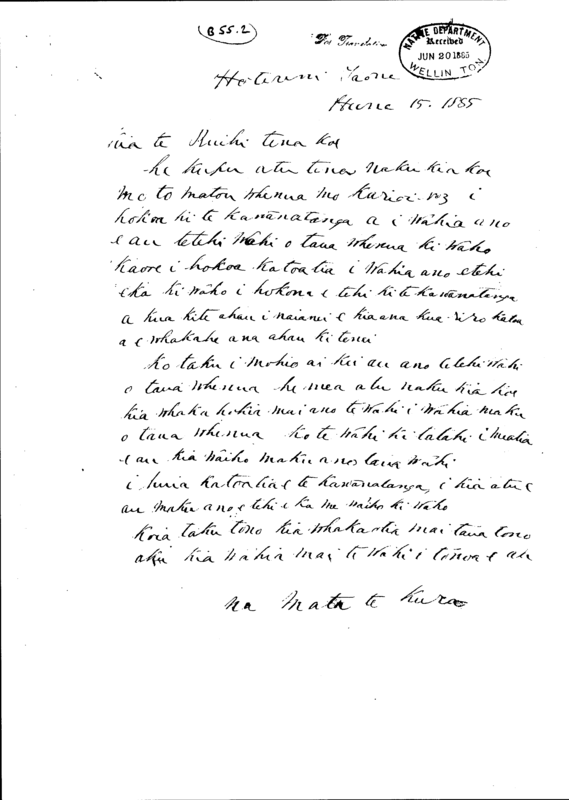 B 55.2
For Translation
NATIVE DEPARTMENT
Received
JUN 20 1885
WELLINGTON
Taone
Hune 15. 1885
Kia te Ruihi tena koe
he kupu atu tenei naku kia koe
mo to matou whenua mo Karioi No 3 i
hokoa ki te kawanatanga a i wahia ano
e au tetehi wahi o taua whenua ki waho
kaore i hokoa katoatia i wahia ano etehi
eka ki waho i hokona etehi ki te kawanatanga
a kua kite ahau i naianei e kiaana kua riro katoa
a e whakahe ana ahau ki tenei
Ko taku i mohio ai kei au ano tetehi wahi
o taua whenua he mea atu naku kia koe
kia whaka hokia mai ano te wahi i wahia maku
o taua whenua ko te wahi ki tatahi i meatia
e au kia waiho maku ano taua wahi
i huia katoatia e te kawanatanga, i kia atu e
au maku ano etehi eka me waiho ki waho
koia taku tono kia whakaotia mai taua tono
aku kia wahia mai te wahi i tonoa e au
na Mata te Kura